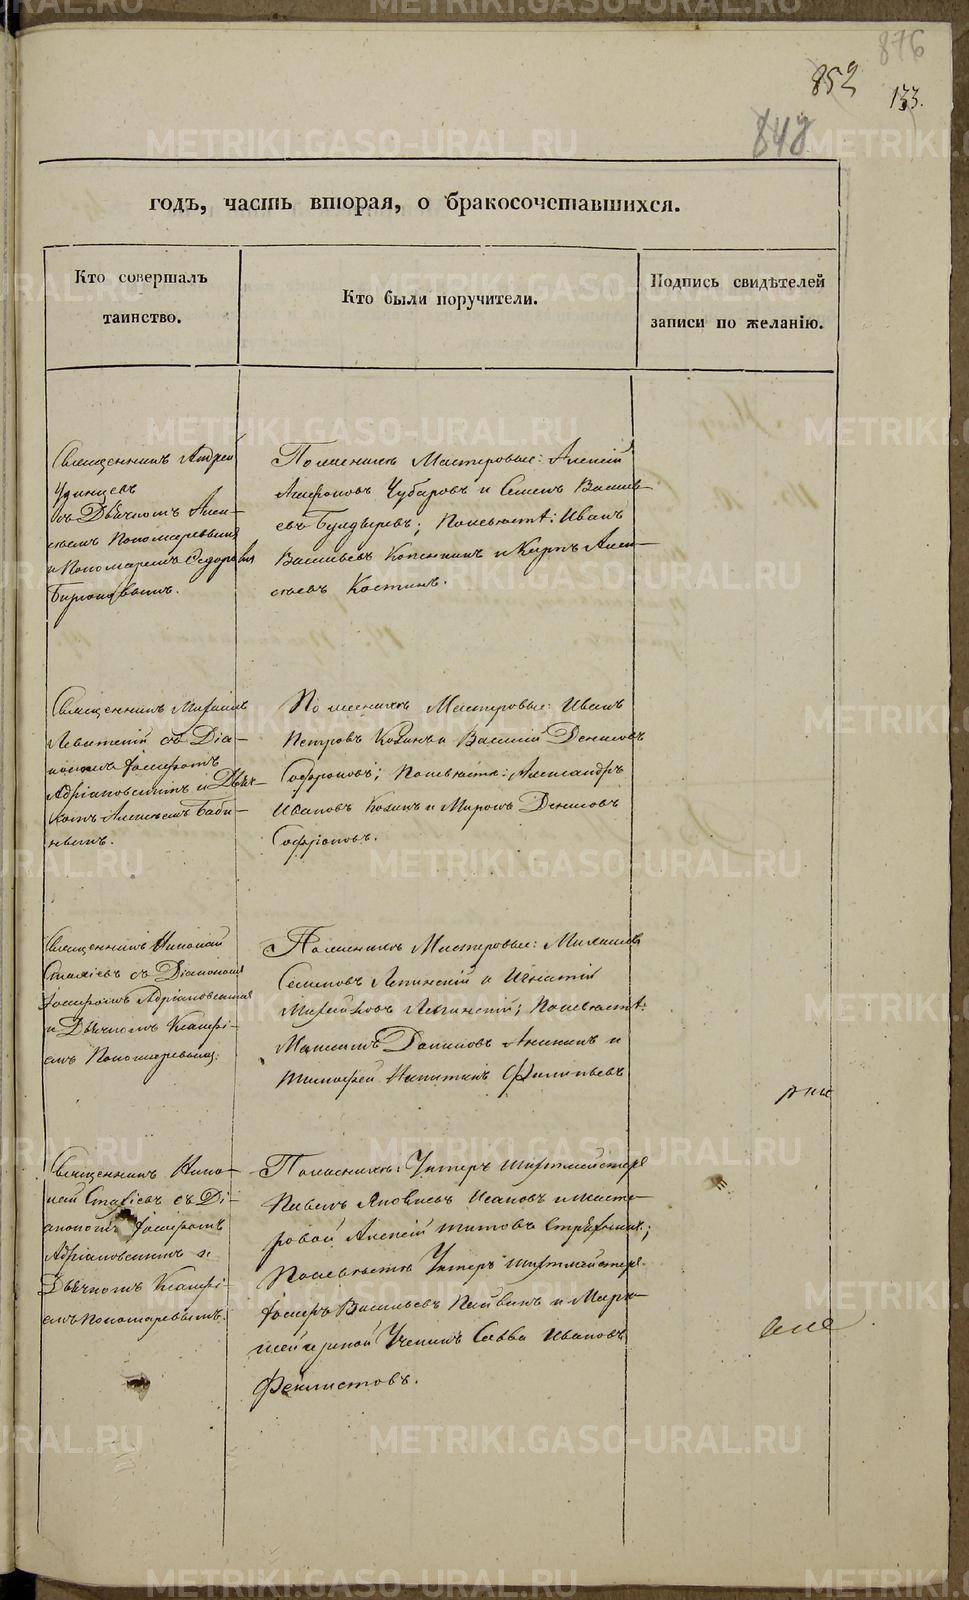 876
852
133.
848
годъ, часть вторая, о бракосочетавшихся.
Кто совершалъ
таинство.
Кто были поручители.
Подпись свидѣтелей
записи по желанію.
Священникъ Андрей
Удинцевъ
съ Дьячкомъ Алек-
сѣемъ Пономаревымъ
и Пономаремъ Ѳедоромъ
Бирюковымъ.
По женихѣ Мастеровые: Алексѣй
Агафоновъ Чубаровъ и Семенъ Василь-
евъ Булдыревъ; По невѣстѣ: Иванъ
Васильевъ Копенкинъ и Карпъ Алек-
сѣевъ Костинъ.
Священникъ Михаилъ
Левитскій съ Діа-
кономъ Іосифомъ
Адріановскимъ и Дьяч-
комъ Алексѣемъ Баби-
нымъ.
По женихѣ Мастеровые: Иванъ
Петровъ Козинъ и Василій Денисовъ
Софроновъ; По невѣстѣ: Александръ
Ивановъ Козинъ и Миронъ Денисовъ
Софроновъ.
Священникъ Николай
съ Діакономъ
Іосифомъ Адріановскимъ
и Дьячкомъ
Пономаревымъ.
По женихѣ Мастеровые: Михаилъ
Семеновъ и Игнатій
По невѣстѣ:
Максимъ Даниловъ Аникинъ и
Тимофей Никитинъ Филипьевъ
Священникъ Нико-
лай съ Ді-
акономъ Іосифомъ
Адріановскимъ и
Дьячкомъ
Пономаревымъ.
По женихѣ: Унтеръ шихтмейстеръ
Павелъ Яковлевъ Исаковъ и масте-
ровой Алексѣй Титовъ
По невѣстѣ Унтеръ шихтмейстеръ
Іосифъ Васильевъ и Марк-
шейдерской Ученикъ Савва Ивановъ
Феклистовъ.
METRIKI.GASO-URAL.RU